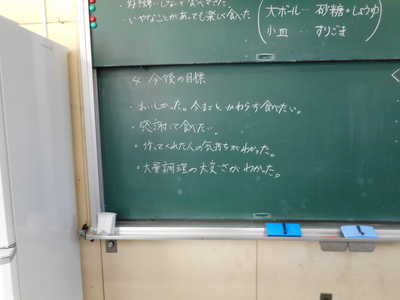 ・いやなことがあっても楽しく食べた
大ボール… 砂糖・しょうゆ
小皿 … すりごま
4. 今後の目標
・おいしかった。今までとかわらず食べたい。
・感謝して食べたい。
・作ってくれた人の気持ちがわかった。
・大量調理の大変さがわかった。